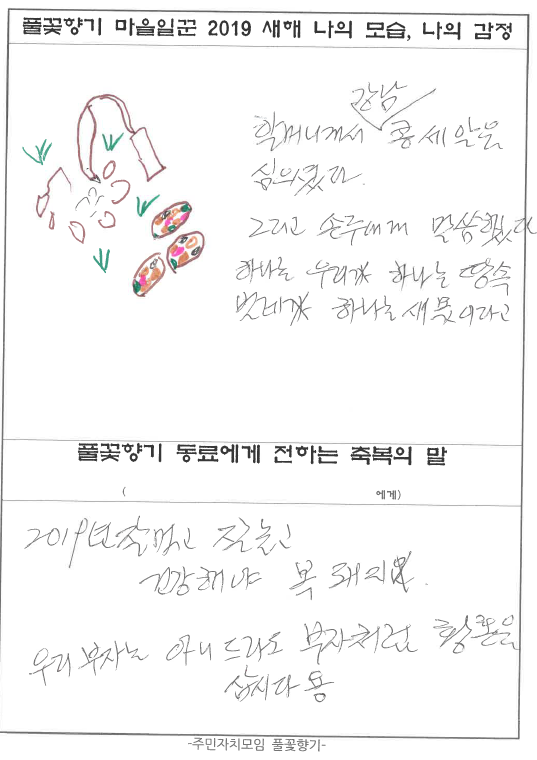 풀꽃향기 마을일꾼 2019 새해 나의 모습, 나의 감정
강남
할머니께서 콩 세 알을
심의셨다.
그리고 손주에게 말씀했다
하나는 우리 하나는 땅속
벗레 하나는 새 이라고
풀꽃향기 동료에게 전하는 축복의 말
( 에게)
2019년 잘먹고 잘놀고
건강해야 복 돼
우리 부자는 아니드라도 부자처럼
삽시다용
-주민자치모임 풀꽃향기-